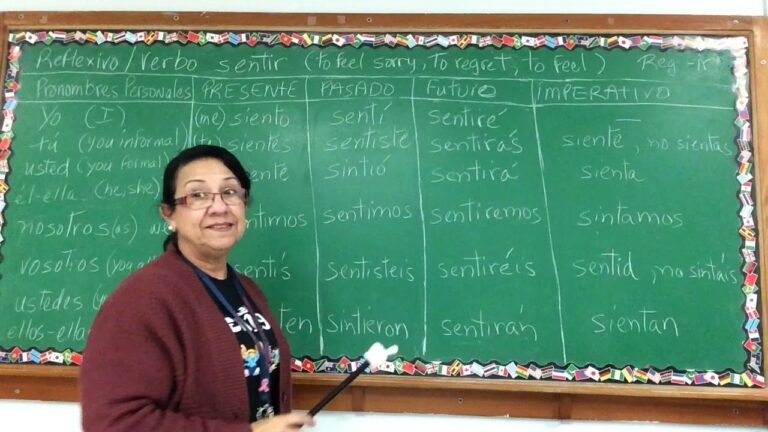 Reflexivo/verbo sentir (to feel sorry, to regret, to feel) Reg -ir
Pronombres Personales PRESENTE PASADO Futuro iMPERATIVO
Yo (I) (me) siento sentí sentiré
tú (you informal) sientes sentiste sentirás siente, no sientas
usted (you formal) sintió sentirá sienta
él-ella (he, she)
nosotros(as) sentimos sentiremos sintamos
vosotros (you sentís sentisteis sentiréis sentid, no sintáis
ustedes
ellos-ellas sintieron sentirán sientan